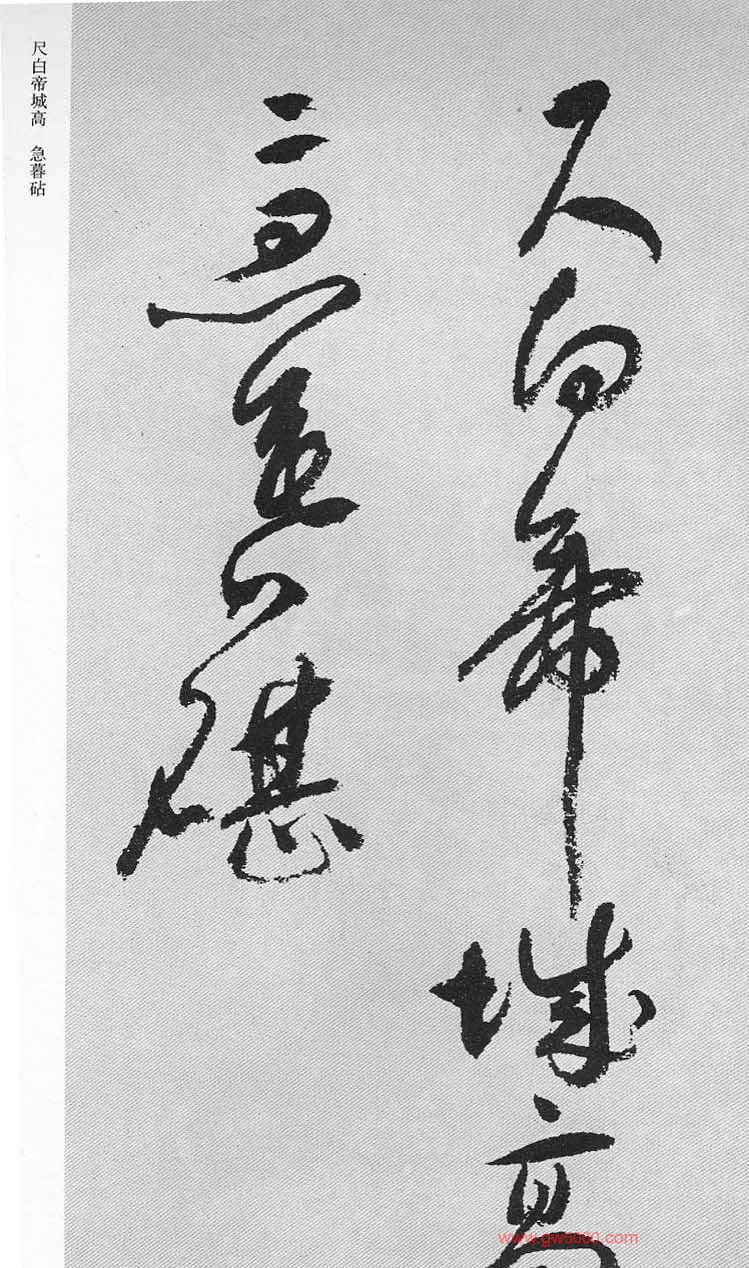 尺白帝城高
急暮碪
尺白帝城高 急暮砧
www.gw5000.com